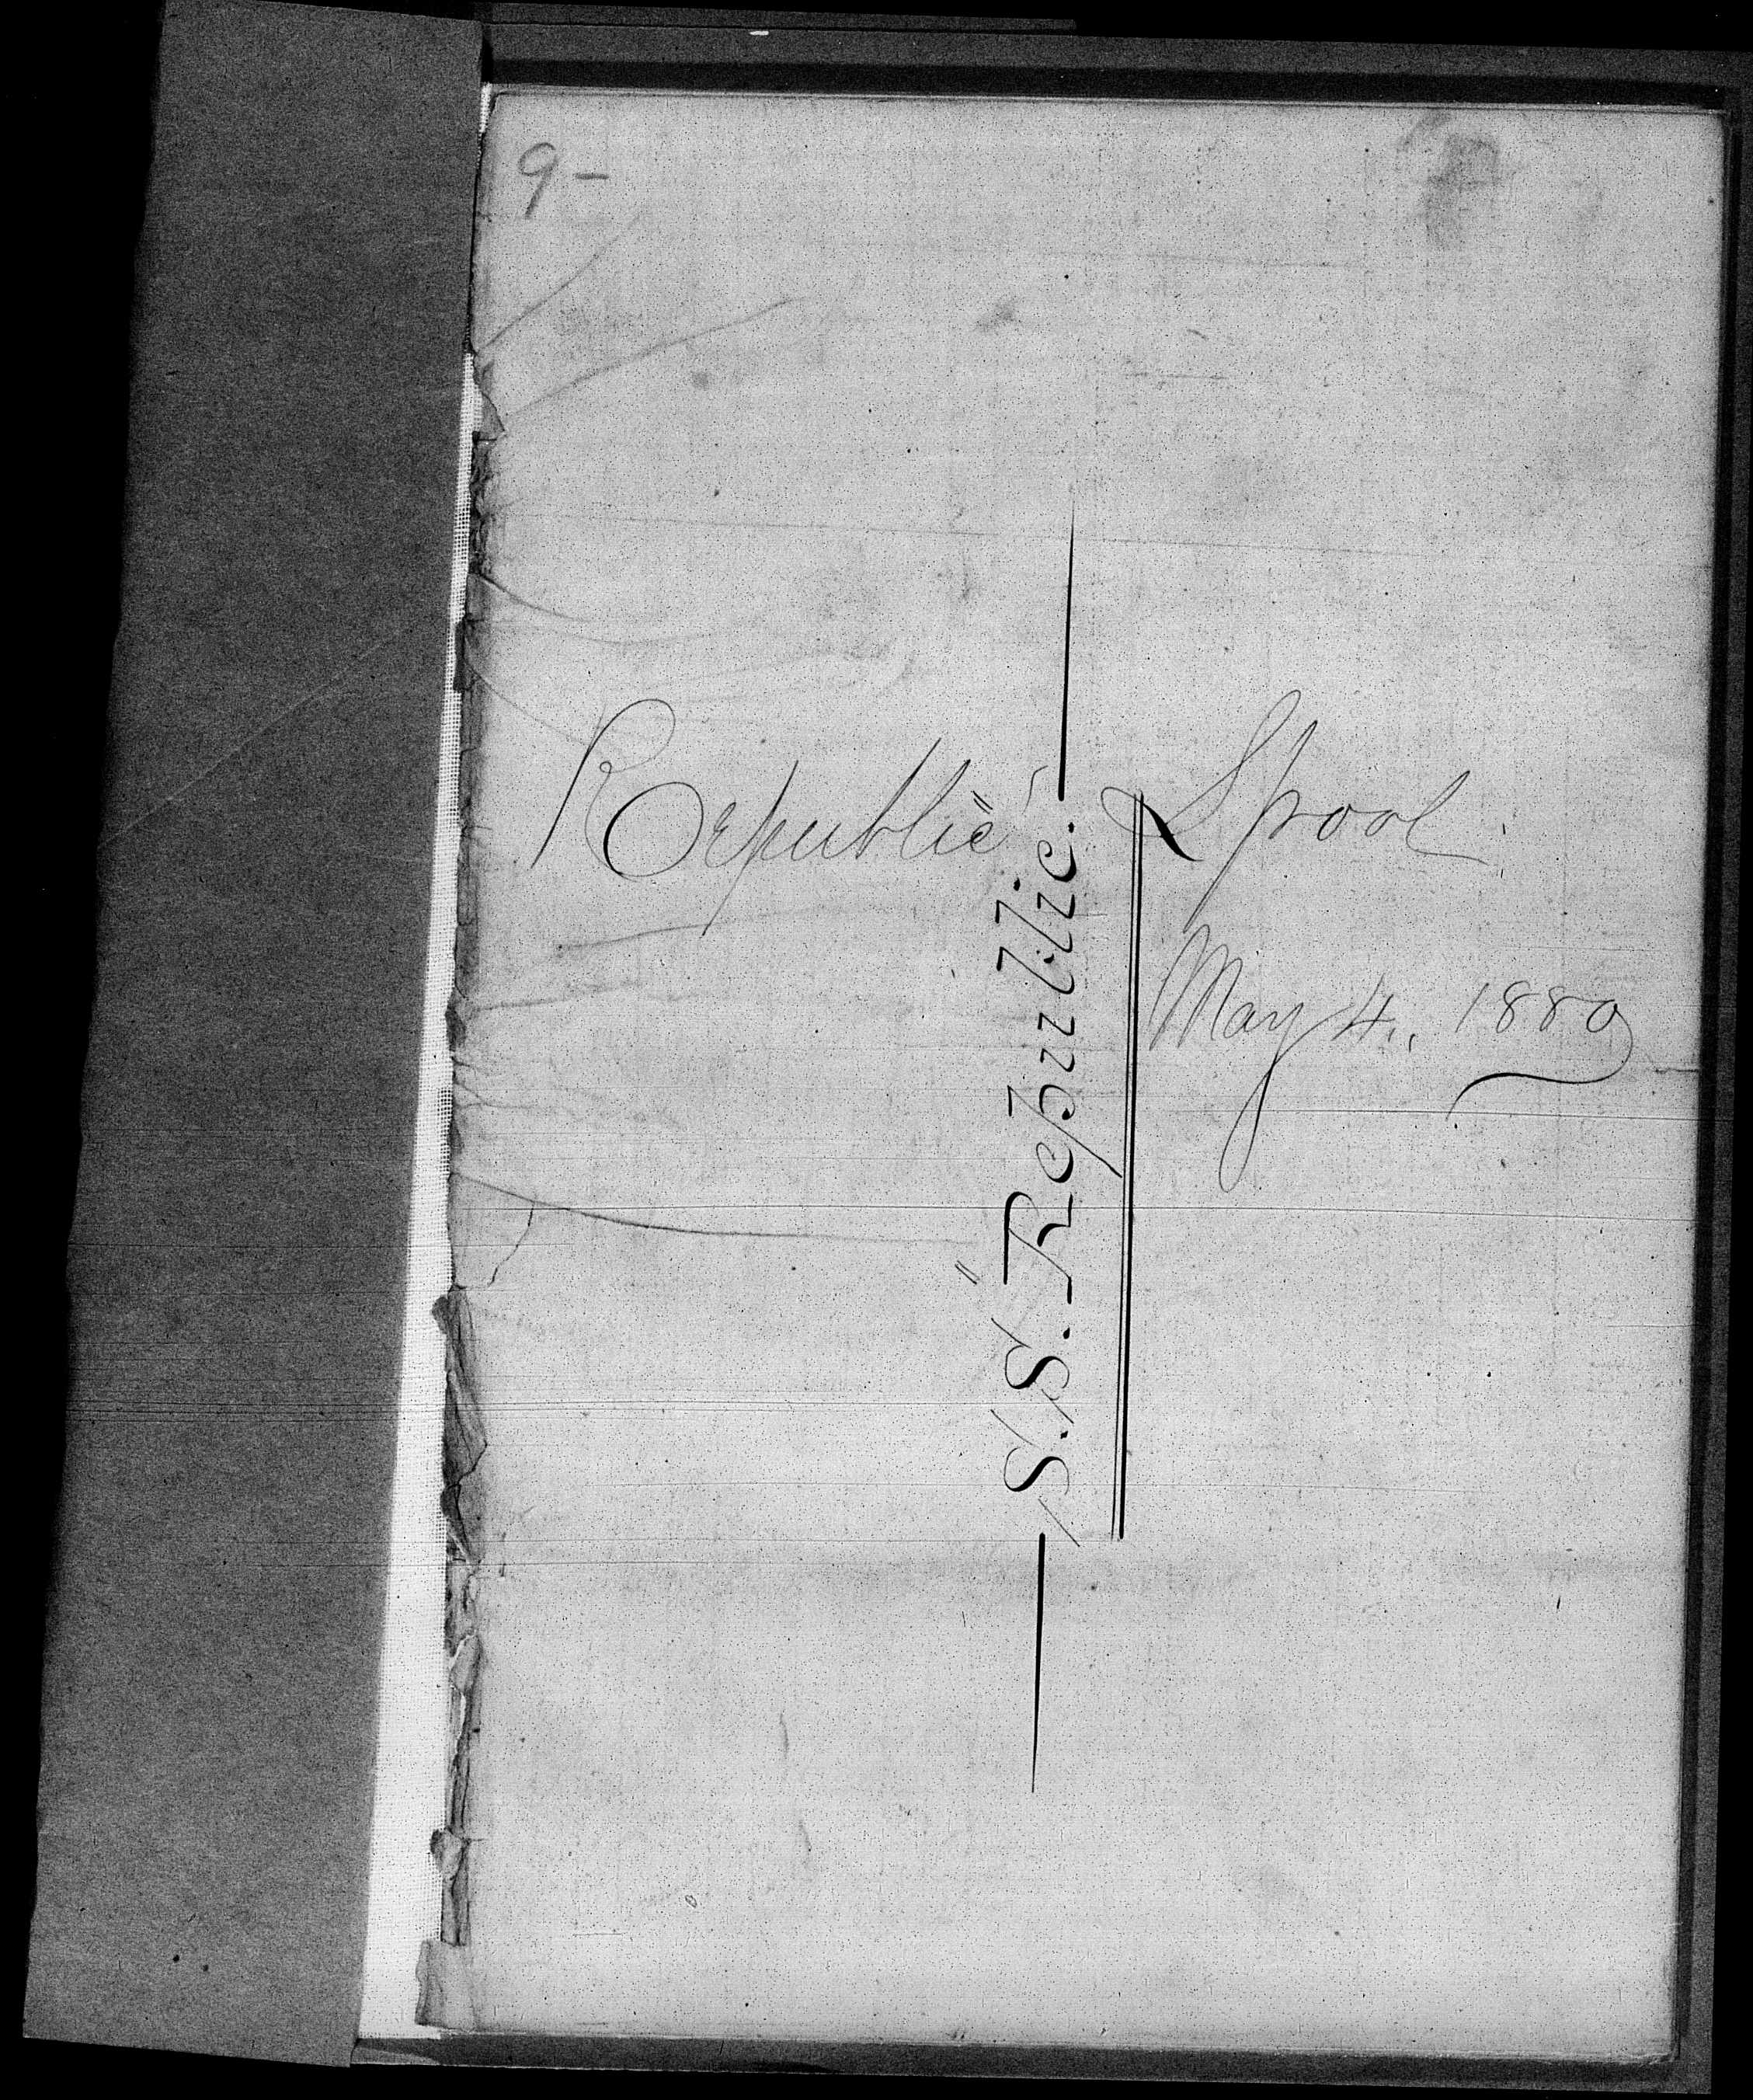 9-
"Republic" Lpool.
May 4., 1889
S.S. "Republic.